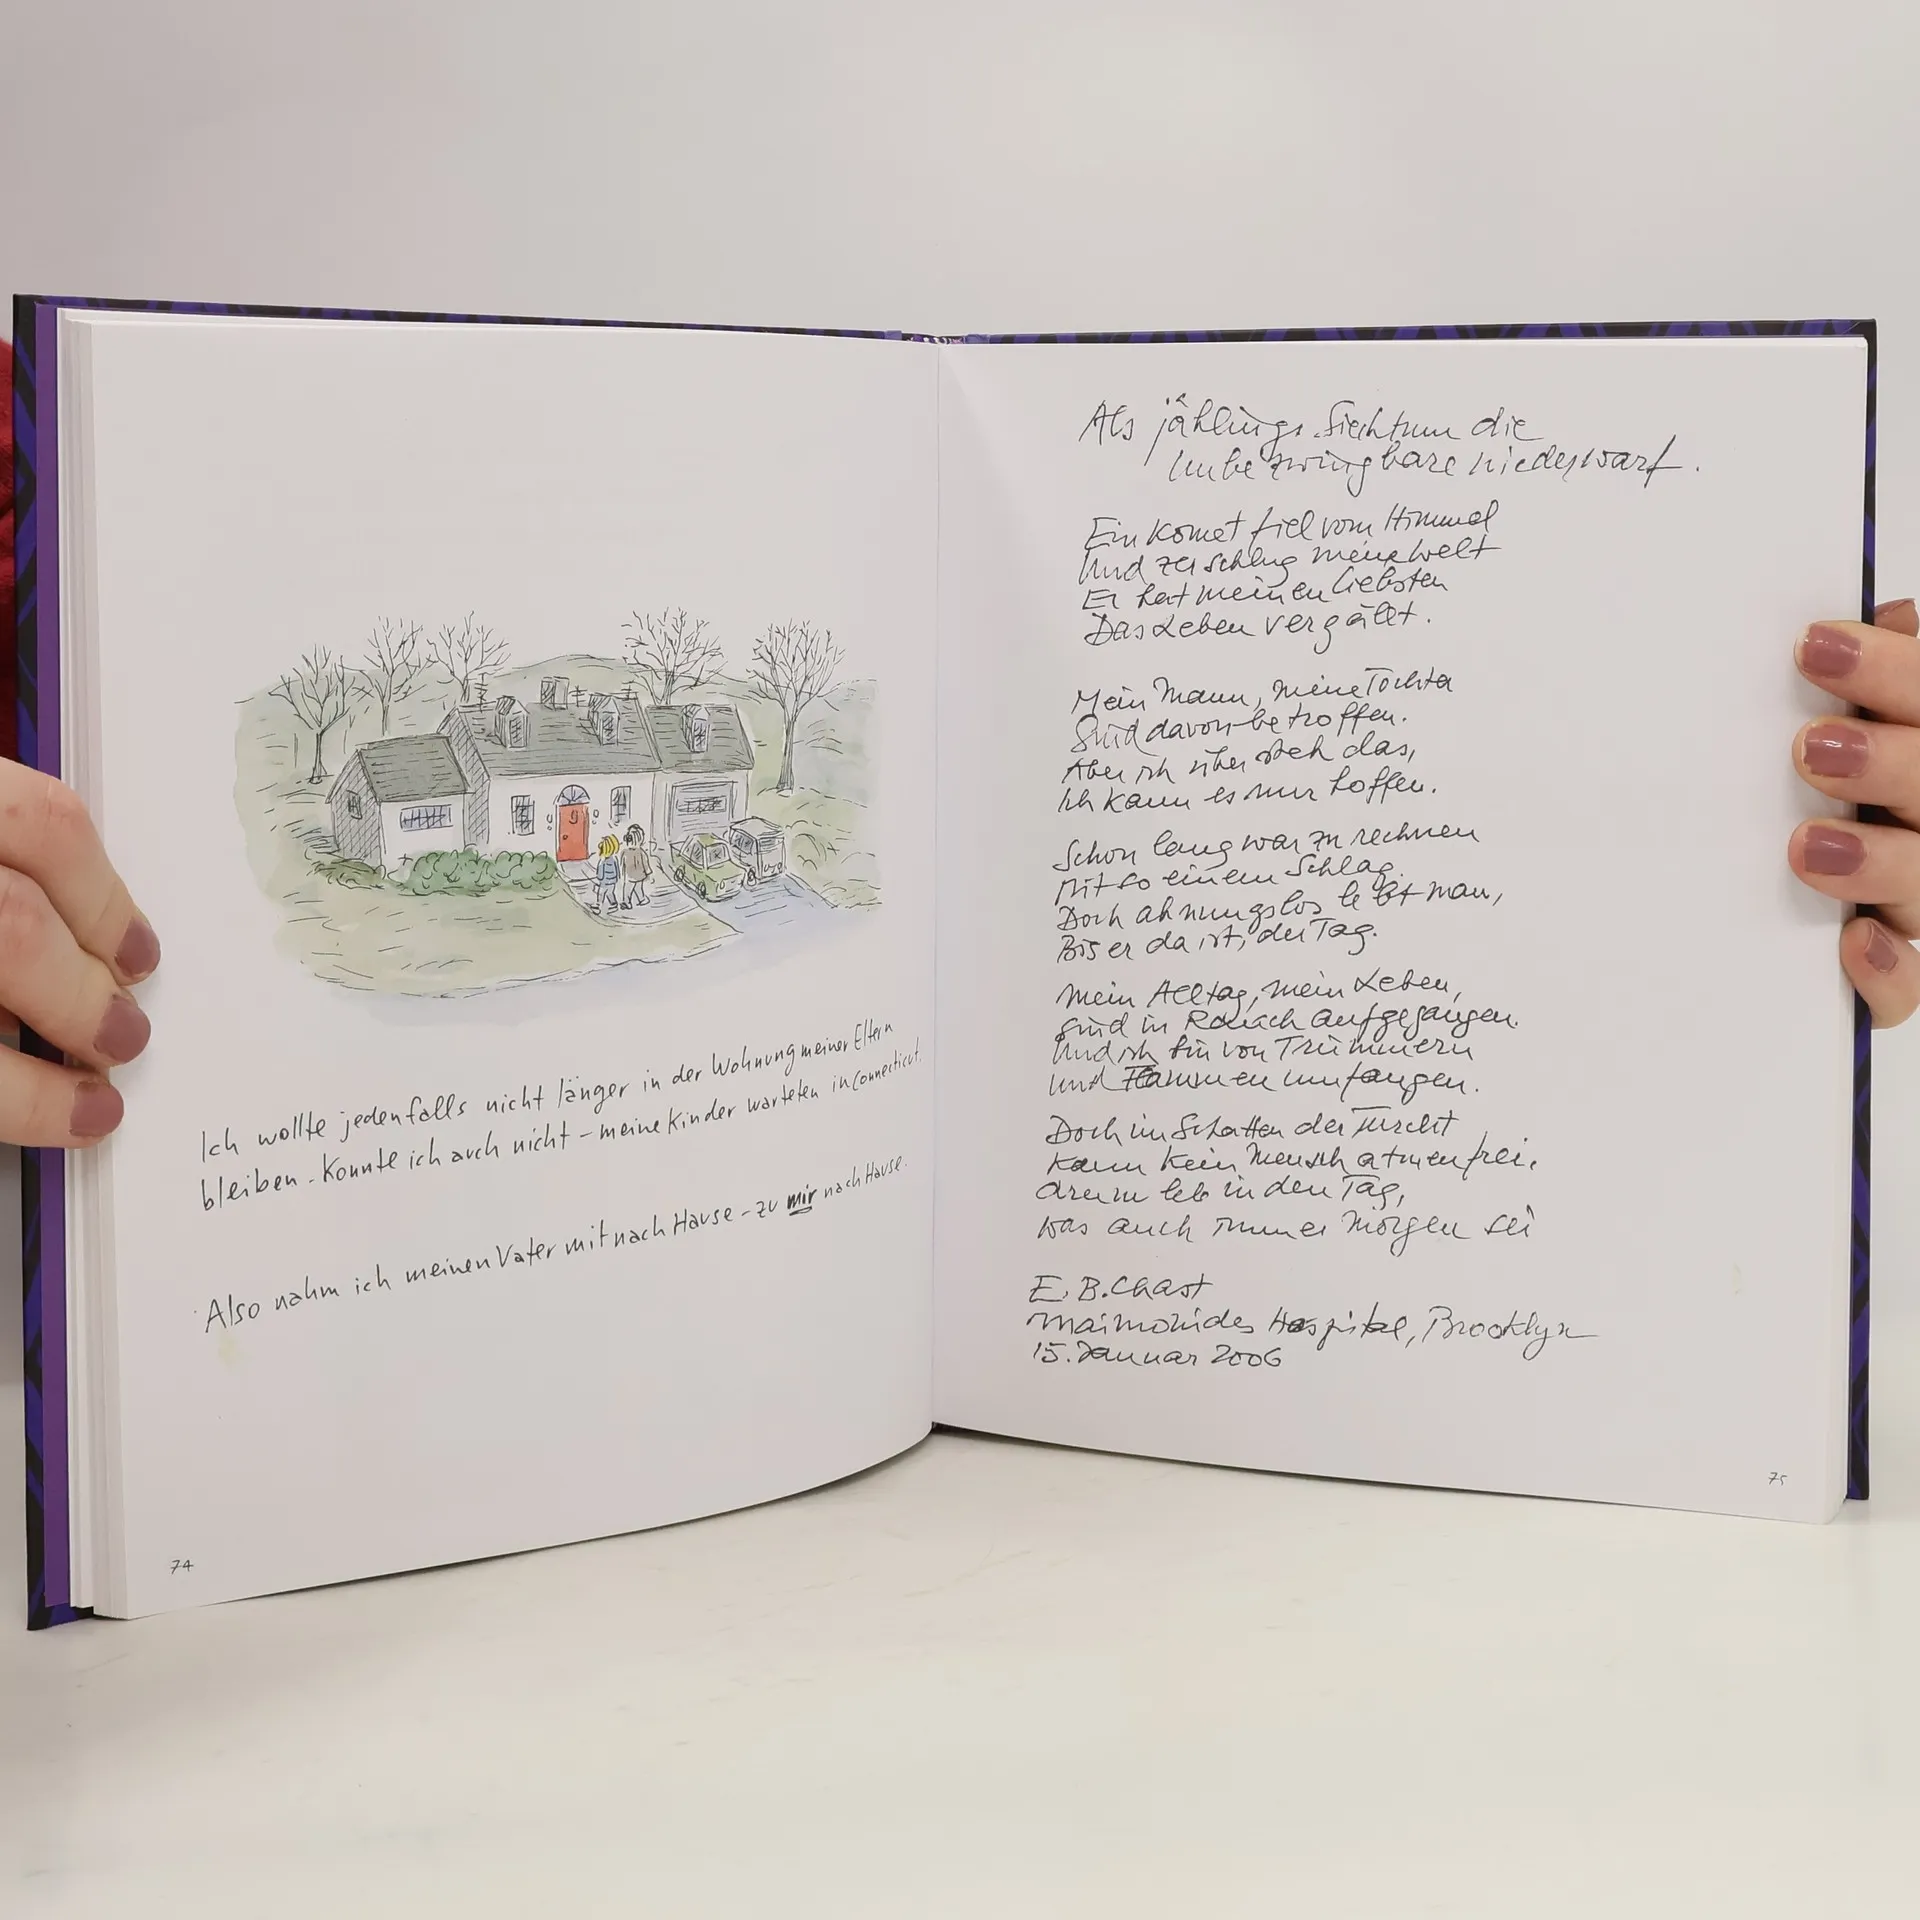 Ich wollte jedenfalls nicht länger in der Wohnung meiner Eltern
bleiben. Konnte ich auch nicht – meine Kinder warteten in Connecticut.
Also nahm ich meinen Vater mit nach Hause – zu mir nach Hause.
74
Als jählings Siechtum die
Unbezwingbare niederwarf.
Ein Komet fiel vom Himmel
Und zerschlug meine Welt
Er hat meinen Liebsten
Das Leben vergällt.
Mein Mann, meine Tochter
Sind davon betroffen.
Aber ich übersteh das,
Ich kann es nur hoffen.
Schon lang war zu rechnen
Mit so einem Schlag.
Doch ahnungslos lebt man,
Bis er da ist, der Tag.
Mein Alltag, mein Leben,
Sind in Rauch aufgegangen.
Und ich bin von Trümmern
Und Flammen umfangen.
Doch im Schatten der Furcht
Kann kein Mensch atmen frei.
drum leb in den Tag,
was auch immer morgen sei
E. B. Chast
Maimonides Hospital, Brooklyn
15. Januar 2006
75